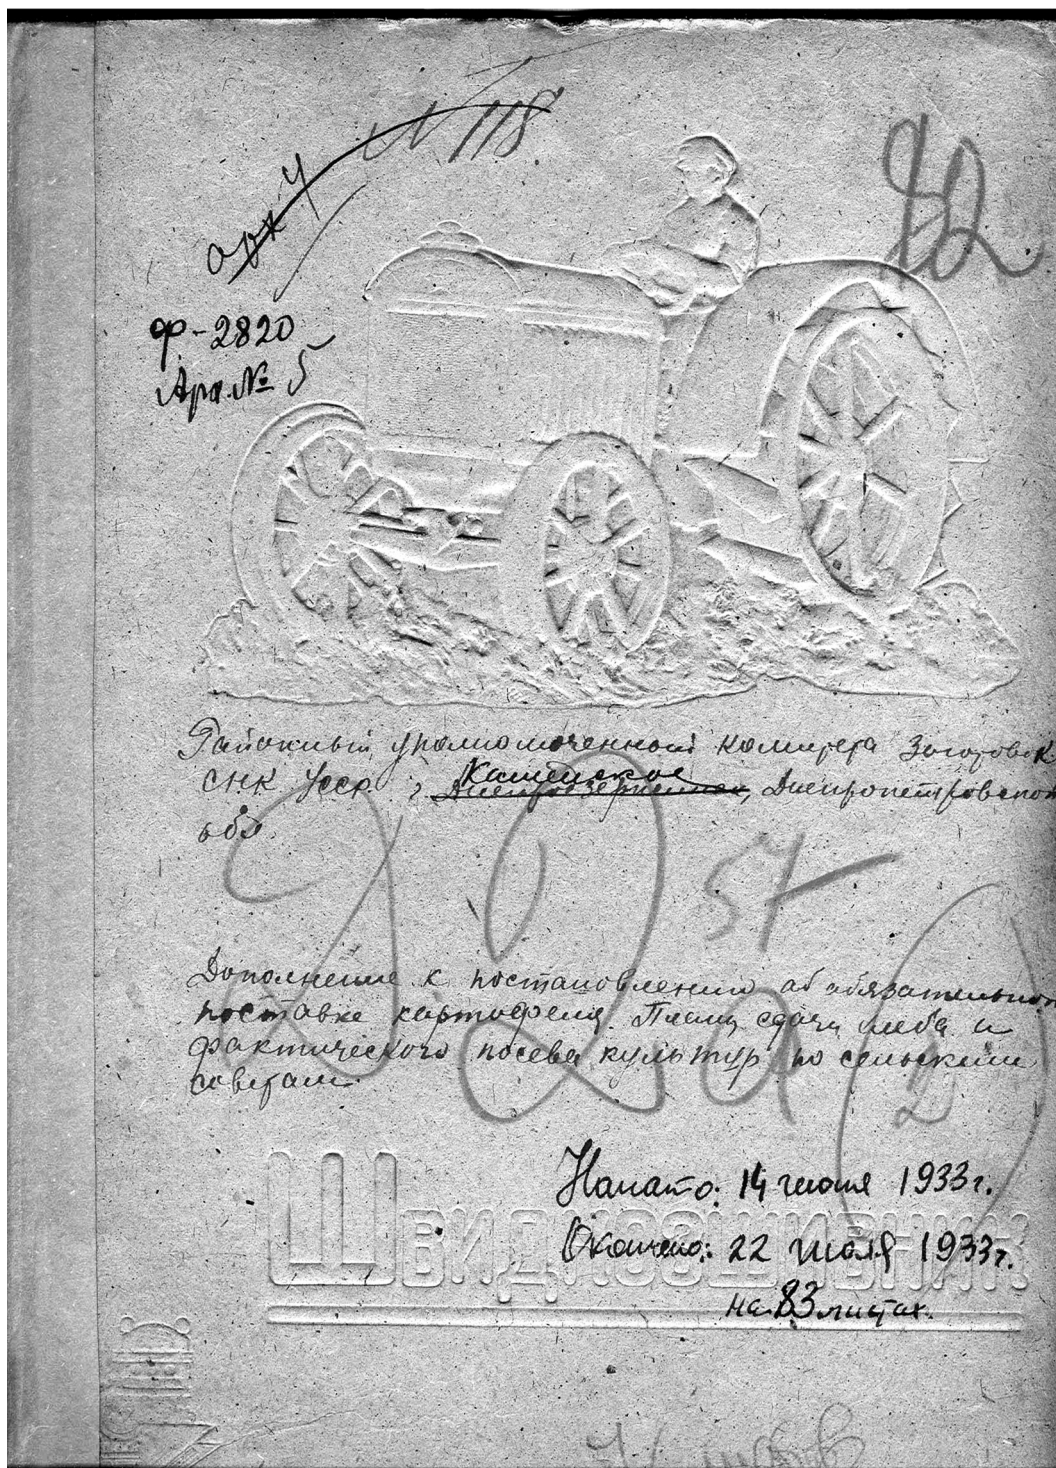 № 118
ф-2820
Арх. № 5
Районный уполномоченный комитета Заготовок
СНК УССР г Каменское Днепродзержинск, Днепропетровской
обл.
54
Дополнение к постановлению об обязательной
поставке картофеля. Планы сдачи хлеба и
фактического посева культур по сельским
советам.
Швидкозшивник
Начато: 14 июня 1933г.
Окончено: 22 июля 1933г.
на 83 листах.